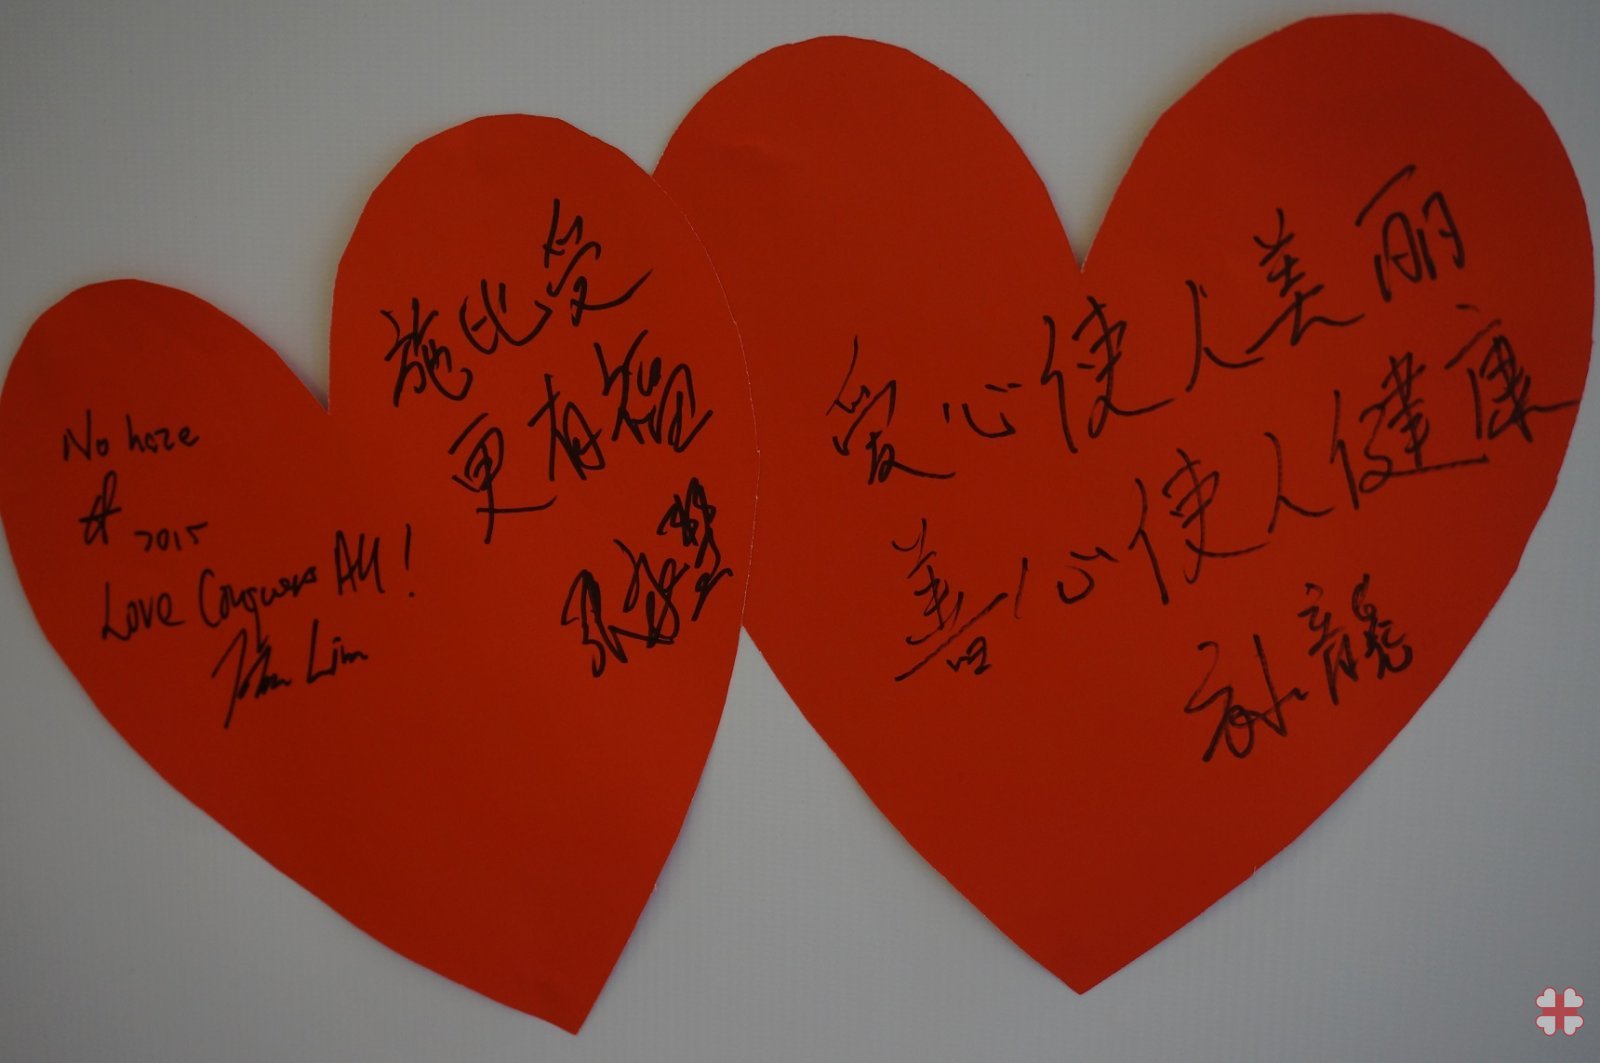 No haze
2015
Love Conquers All!
John Lim
施比受
更有福
爱心使人美丽
善心使人健康